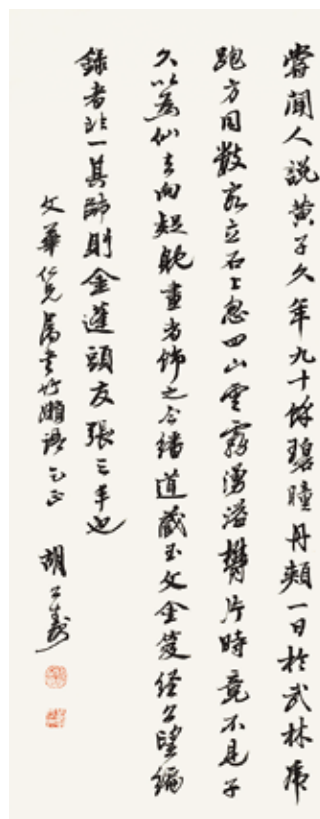 嘗聞人說黃子久年九十餘碧瞳丹頰一日於武林虎
跑方同數客立石上忽四山雲霧湧溢欝片時竟不見子
久以為仙去向疑耽畫者飾之今繙道藏玉文金笈经公望編
錄者非一其師則金蓬頭友張三丰也
文華仁兄屬書竹嬾語乞正 胡公壽